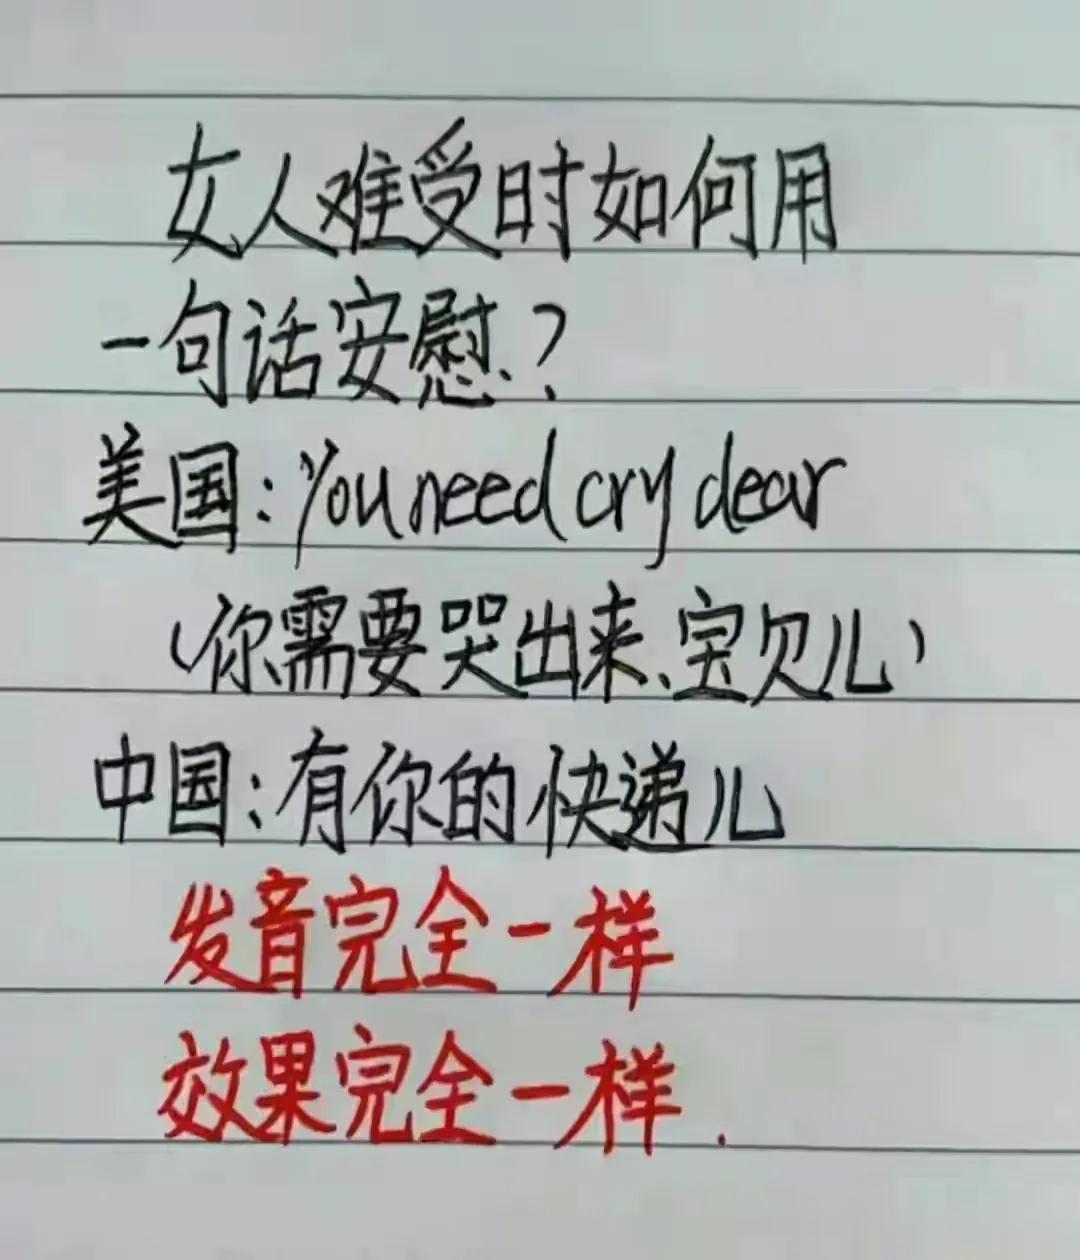 女人难受时如何用
一句话安慰.?
美国:You need cry dear
(你需要哭出来、宝贝儿)
中国:有你的快递儿
发音完全一样
效果完全一样.